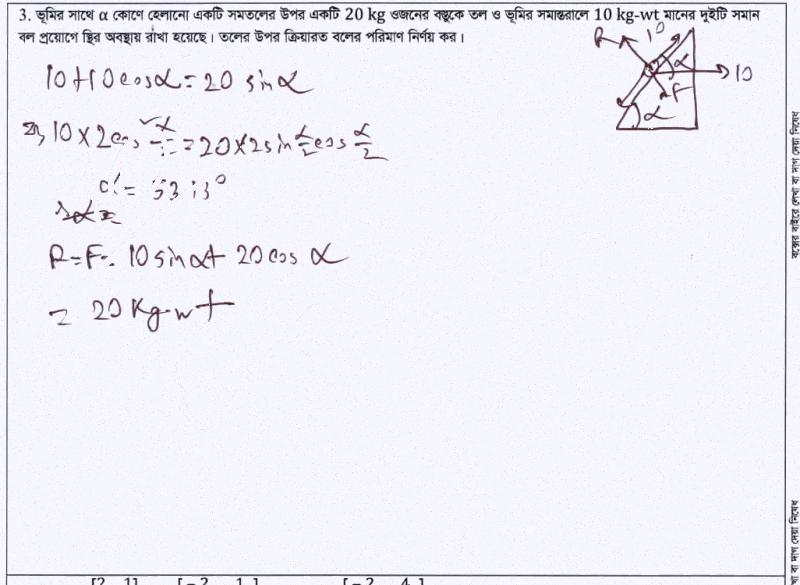 3. ভূমির সাথে α কোণে হেলানো একটি সমতলের উপর একটি 20 kg ওজনের বস্তুকে তল ও ভূমির সমান্তরালে 10 kg-wt মানের দুইটি সমান
বল প্রয়োগে স্থির অবস্থায় রাখা হয়েছে। তলের উপর ক্রিয়ারত বলের পরিমাণ নির্ণয় কর।
R 10
α
10
F
α
10+10 cosα = 20 sinα
10×2cos = 20×2sin α/2 cos α/2
α = 53.13°
R=F= 10 sinα+ 20 cos α
= 20 Kg-wt
বক্সের বাইরে লেখা বা দাগ দেয়া নিষেধ
বা দাগ দেয়া নিষেধ